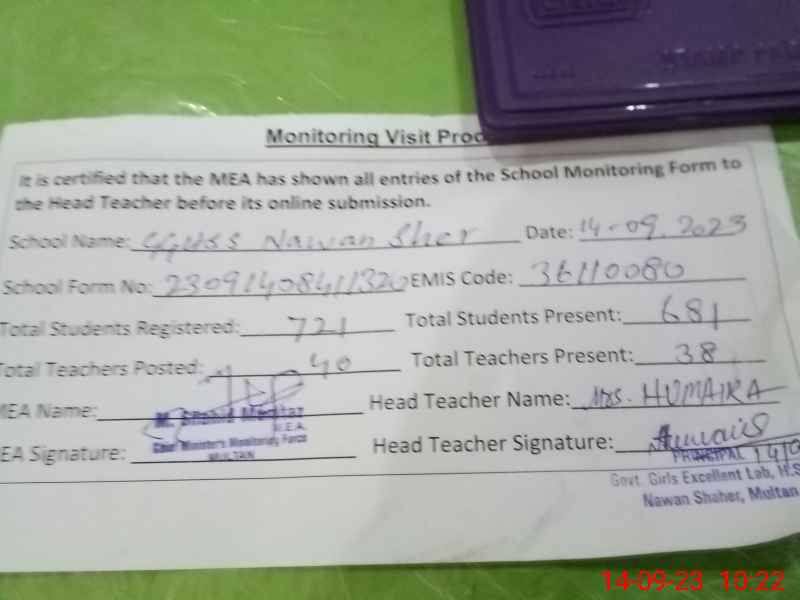 Monitoring Visit
It is certified that the MEA has shown all entries of the School Monitoring Form to
the Head Teacher before its online submission.
School Name: GGHSS Nawan Sher Date: 14-09.2023
School Form No: EMIS Code: 36110080
Total Students Registered: 721 Total Students Present: 681
Total Teachers Posted: 40 Total Teachers Present: 38
MEA Name: Head Teacher Name: Mrs. HUMAIRA
M. Shahid Mumtaz
M.E.A.
Chief Minister's Monitoring Force
MULTAN
EA Signature: Head Teacher Signature:
PRINCIPAL
Govt. Girls Excellent Lab, H.S
Nawan Shaher, Multan
14-09-23 10:22